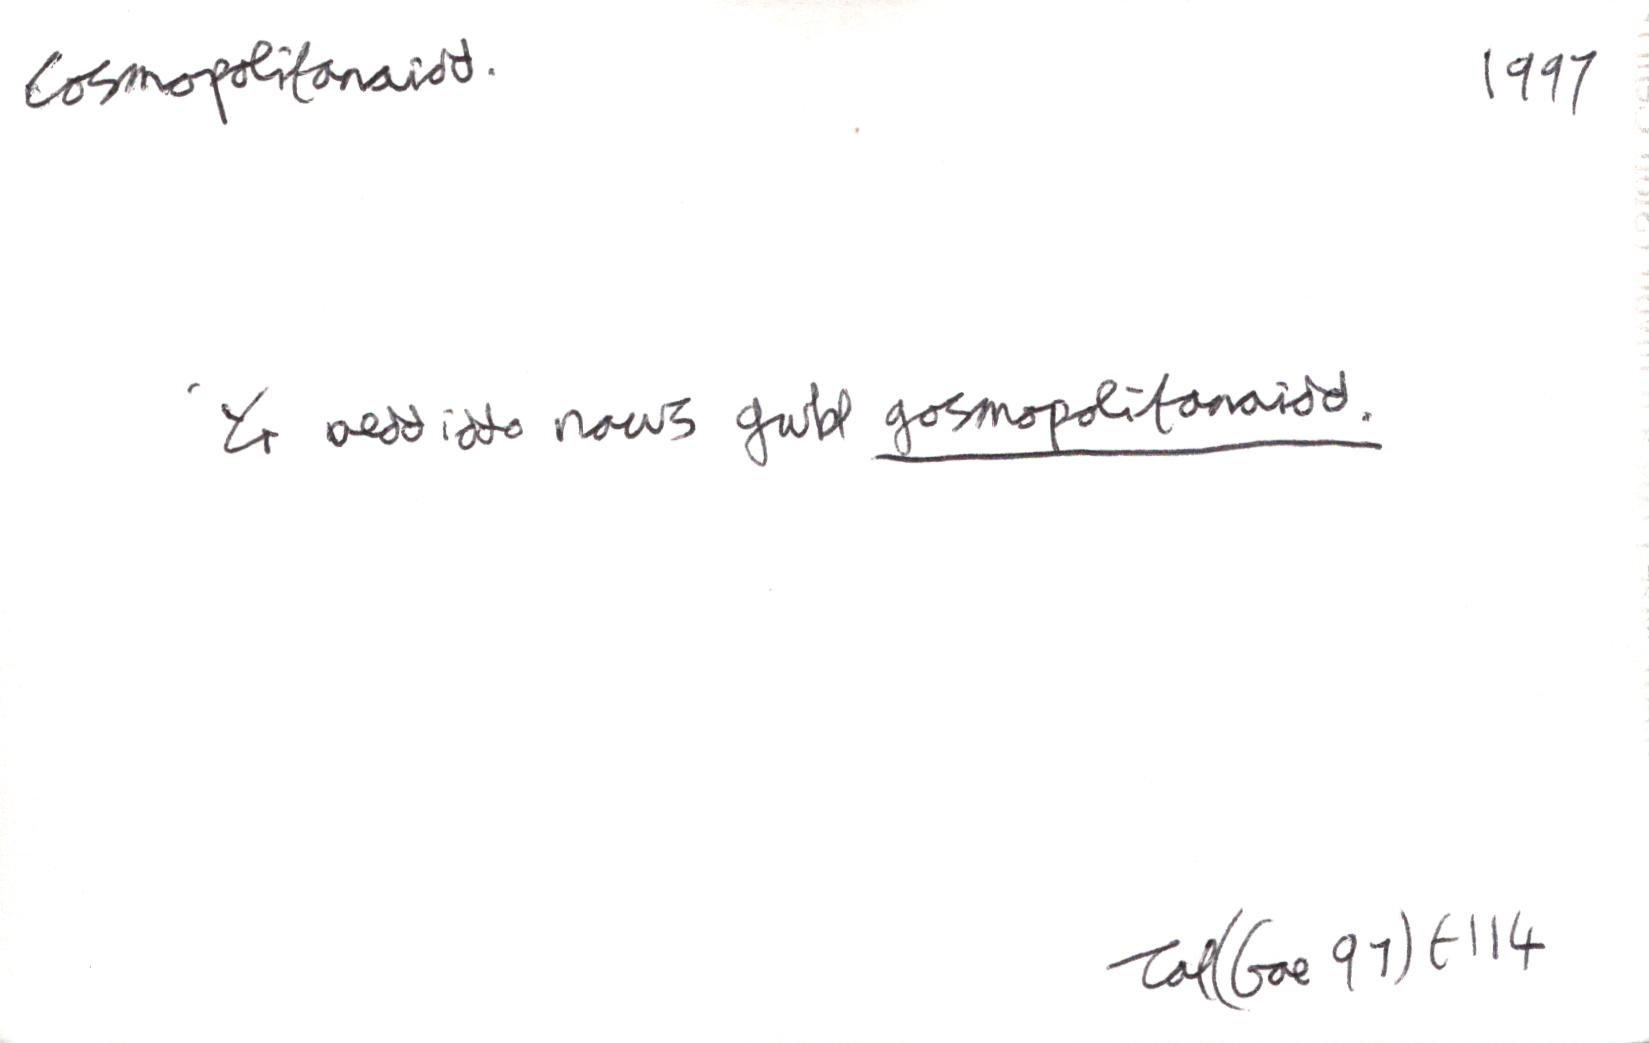 Cosmopolitanaidd. 1997
'Yr oedd iddo naws gwbl gosmopolitanaidd.
Tal (Gae 97) t 114